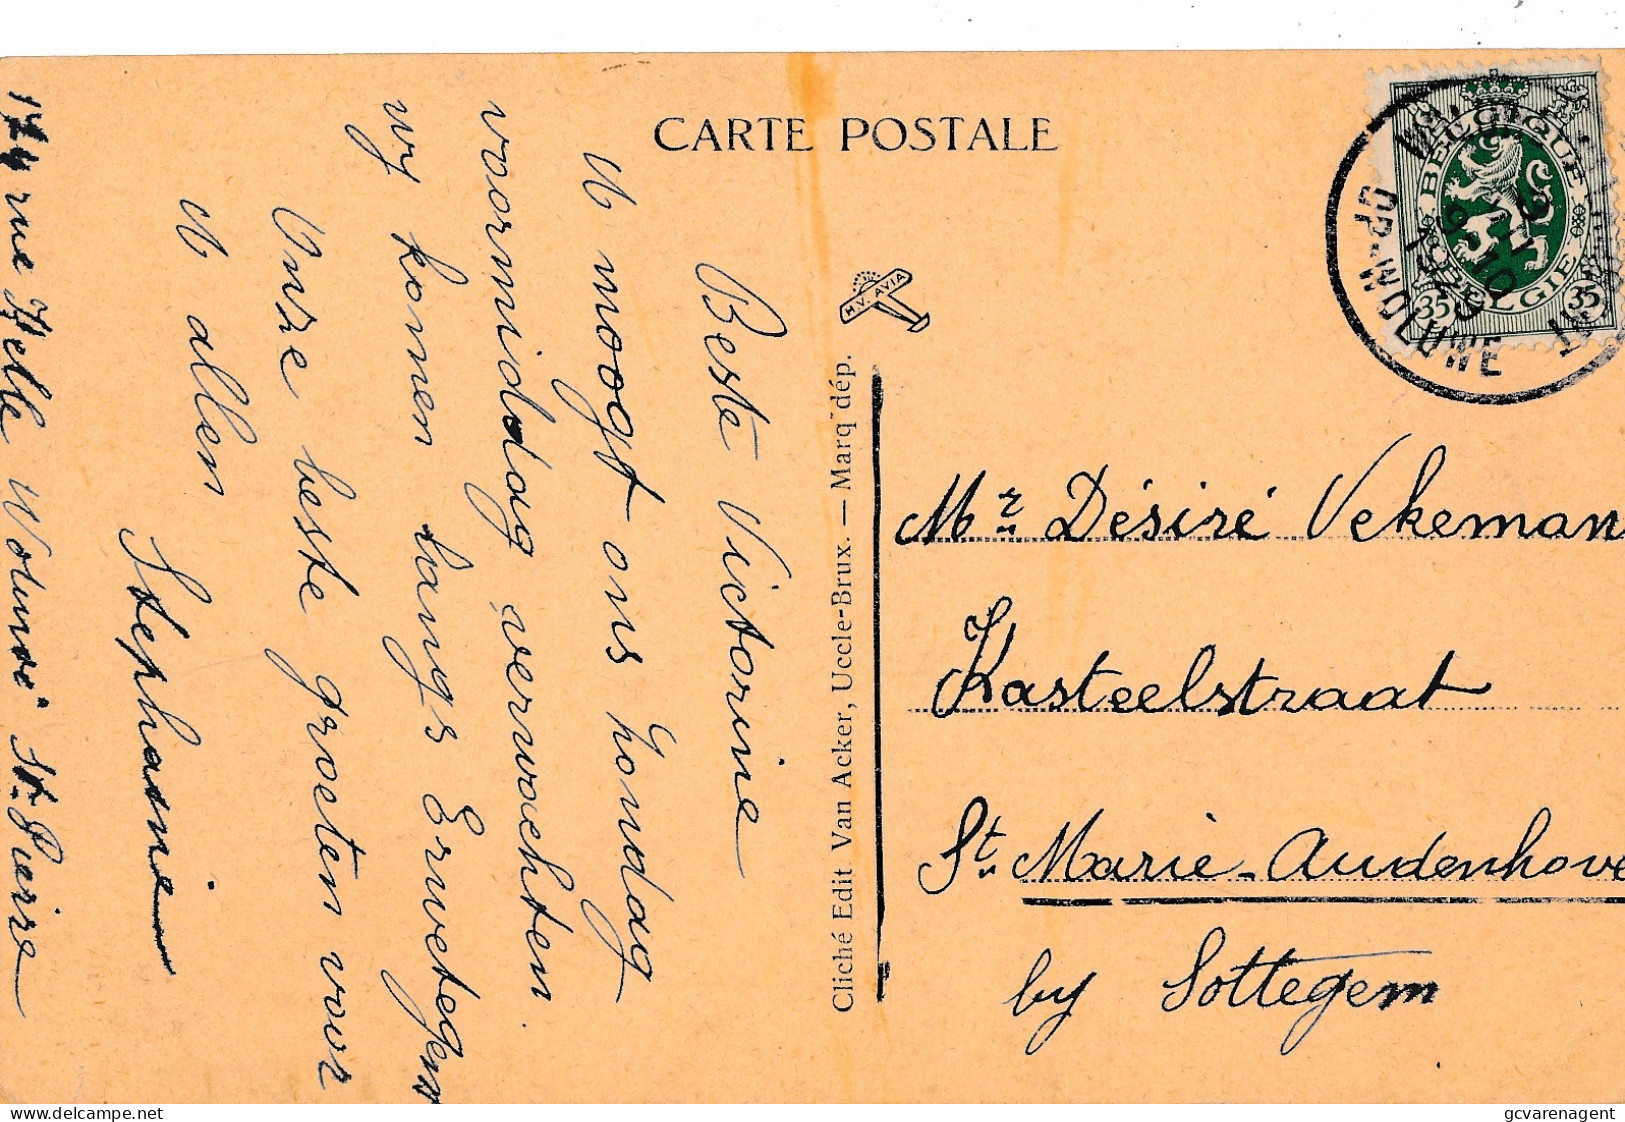 CARTE POSTALE
BELGIQUE
BELGIË
35 35
WOLUWE
OP-WOLUWE
9-10
1929
H.V. AVIA
Cliché Edit Van Acker, Uccle-Brux. — Marq dép.
Beste Victorine
U moogt ons Zondag
voormiddag verwachten.
wy komen langs Erwetegem
Onze beste groeten voor
U allen
Stephanie
rue Felle Woluwé St-Pierre
Mr Désiré Vekeman
Kasteelstraat
St. Marie-Audenhove
by Sottegem
delcampe.net
gcvarenagent